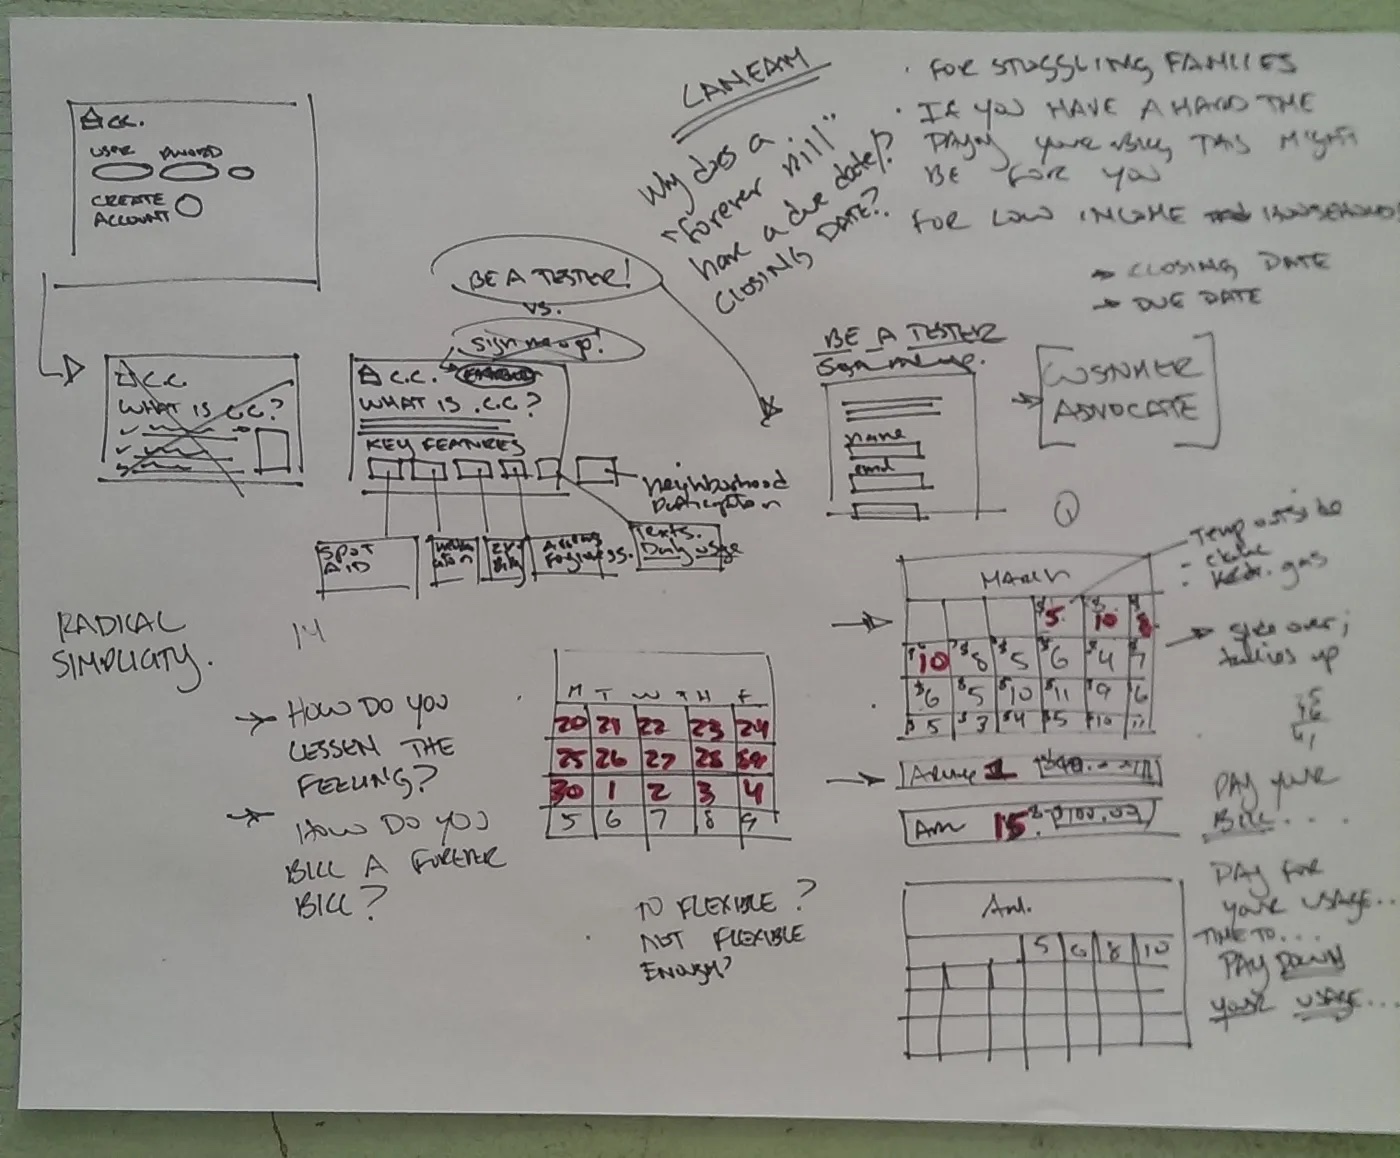 LANEAM
Why does a
"forever bill"
have a due date/?
CLOSING DATE?
· FOR STUGGLING FAMILIES
· IF YOU HAVE A HARD TIME
PAYING YOUR BILL THIS MIGHT
BE FOR YOU
FOR LOW INCOME HOUSEHOLDS
CLOSING DATE
DUE DATE
C.C.
USER PWORD
CREATE
ACCOUNT
BE A TESTER!
VS.
sign me up!
C.C.
WHAT IS C.C?
C.C.
WHAT IS C.C?
KEY FEATURES
neighborhood
participation
SPOT
AID
Texts.
Daily usage
BE A TESTER
Sign me up.
name
email
ADVOCATE
RADICAL
SIMPLICITY.
14
HOW DO YOU
LESSEN THE
FEELING?
HOW DO YOU
BILL A FOREVER
BILL?
M T W TH F
20 21 22 23 24
25 26 27 28
30 1 2 3 4
5 6 7 8 9
TO FLEXIBLE?
NOT FLEXIBLE
ENOUGH?
Temp outside
gas
MARCH
$5 $10 8
$10 $8 $5 $6 $4 7
$6 $5 $10 $11 $9 6
$5 $3 $4 $5 $10 11
over;
tallies up
15
PAY YOUR
BILL...
PAY FOR
YOUR USAGE..
TIME TO...
PAY DOWN
YOUR USAGE...
5 6 8 10